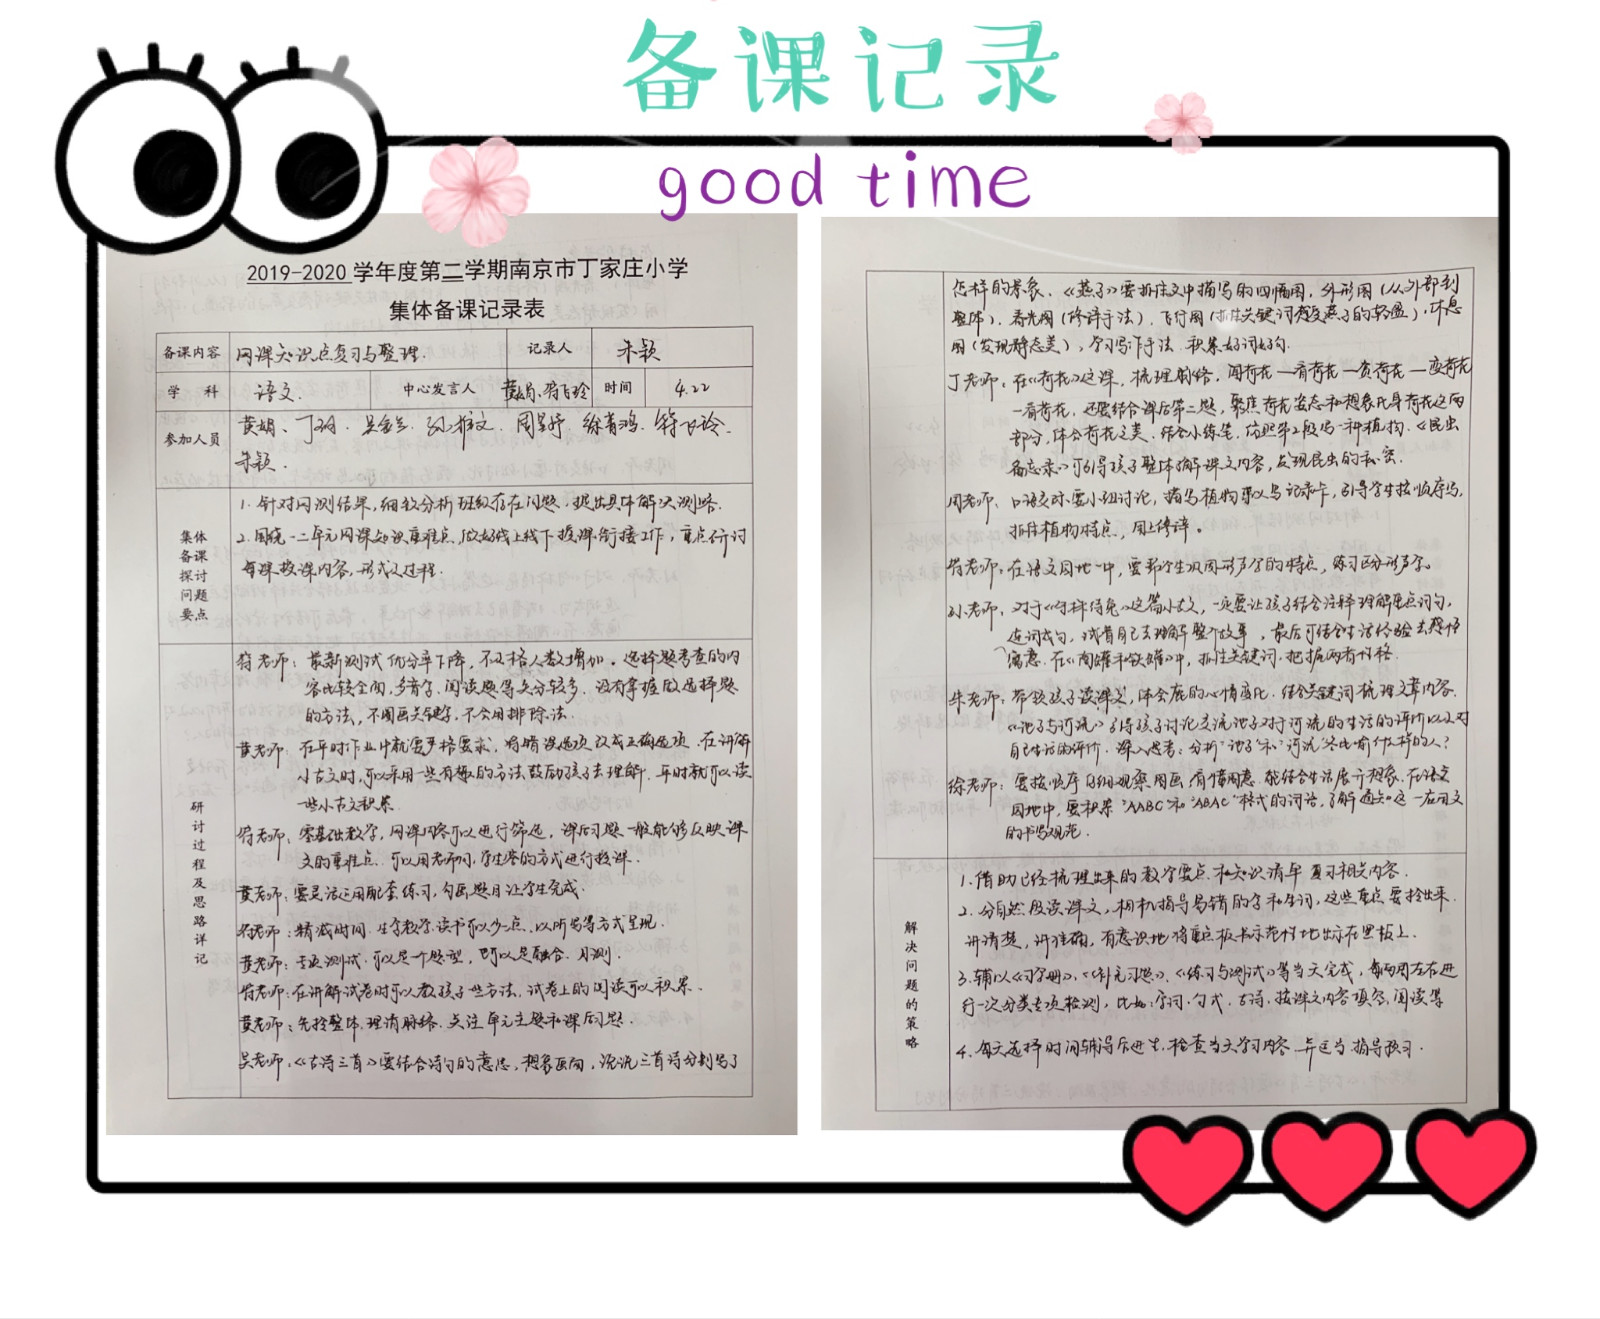 备课记录
good time
2019-2020 学年度第二学期南京市丁家庄小学
集体备课记录表
备课内容 网课知识点复习与整理. 记录人 朱颖
学 科 语文. 中心发言人 黄娟、 时间 4.22
参加人员 黄娟、丁玥. 周 徐青鸿.
朱颖.
集体备课探讨问题要点
1. 针对网测结果,细致分析班级存在问题,提出具体解决
2. 围绕一二单元网课知识重难点,做好线上线下授课衔接工作,重点研讨
每课授课内容,形式及过程.
研讨过程及思路详记
符老师:最新测试优分率下降,不及格人数增加。选择题考查的内
容比较全面,多音字、阅读题等失分较多.没有掌握做选择题
的方法,不圈画关键字,不会用排除法.
黄老师:在平时作业中就要严格要求,将错误选项改成正确选项.在讲解
小古文时,可以采用一些有趣的方法鼓励孩子去理解.平时就可以读
一些小古文积累.
符老师:零基础教学,网课内容可以进行筛选,课后习题一般能够反映课
文的重难点.可以用老师问,学生答的方式进行授课.
黄老师:要灵活运用配套练习,勾画题目让学生完成.
符老师:精减时间.生字教学、读书可以少一点,以听写等方式呈现.
黄老师:专项测试.可以是一个题型,也可以是融合.月测.
符老师:在讲解试卷时可以教孩子一些方法.试卷上的阅读可以积累.
黄老师:先抓整体,理清脉络.关注单元主题和课后习题.
吴老师:《古诗三首》要结合诗句的意思,想象画面,说说三首诗分别写了
怎样的景象.《燕子》要抓住文中描写的四幅图,外形图(从外部到
整体).春光图(修辞手法).飞行图(抓住关键词感受燕子的轻盈).休息
图(发现静态美),学习写作手法.积累好词好句.
丁老师:在《荷花》这课,梳理脉络.闻荷花—看荷花—赏荷花—变荷花
—看荷花.还要结合课后第二题,聚焦荷花姿态和想象化身荷花这两
部分,体会荷花之美.结合小练笔,仿照第2段写一种植物.《昆虫
备忘录》可引导孩子整体了解课文内容,发现昆虫的秘密.
周老师:口语交际要小组讨论,描写植物要以写记录卡,引导学生按顺序写,
抓住植物特点,用上修辞.
符老师:在语文园地一中,要带学生巩固形声字的特点,练习区分形声字.
孙老师:对于《守株待兔》这篇小古文,一定要让孩子结合注释理解重点词句,
连词成句,试着自己去理解整个故事,最后可结合生活经验去感悟
寓意.在《陶罐和铁罐》中,抓住关键词.把握两者性格.
朱老师:带领孩子读课文,体会鹿的心情变化.结合关键词梳理文章内容.
《池子与河流》引导孩子讨论交流池子对于河流的生活的评价以及对
自己生活的评价.深入思考:分析“池子”和“河流”各比喻什么样的人?
徐老师:要按顺序仔细观察图画,看懂图意.能结合生活展开想象.在语文
园地中,要积累“AABC”和“ABAC”样式的词语,了解通知这一应用文
的书写规范.
解决问题的策略
1. 借助已经梳理出来的教学要点和知识清单复习相关内容.
2. 分自然段读课文,相机指导易错的字和生词,这些重点要拎出来.
讲清楚,讲准确,有意识地将重点板书示范性地出示在黑板上.
3. 辅以《习字册》、《补充习题》、《练习与测试》等当天完成,每两周左右进
行一次分类专项检测,比如:字词.句式.古诗.按课文内容填空,阅读等
4. 每天选择时间辅导后进生,检查当天学习内容.并适当指导预习.